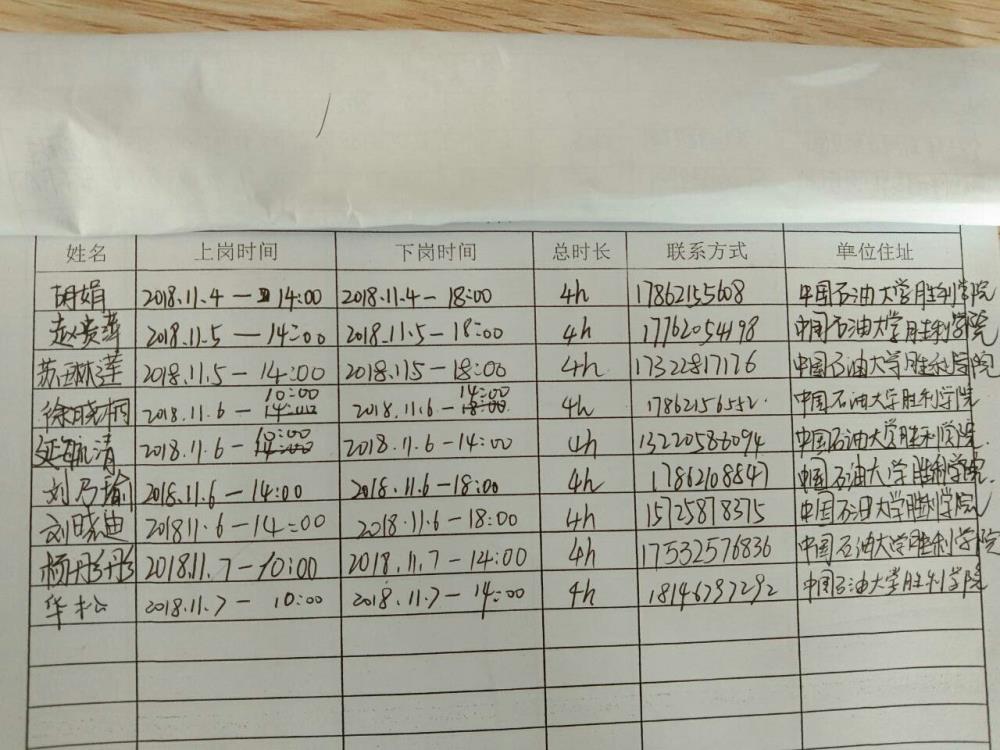 姓名 上岗时间 下岗时间 总时长 联系方式 单位住址
胡娟 2018.11.4 — 14:00 2018.11.4 - 18:00 4h 17862155608 中国石油大学胜利学院
赵贵萍 2018.11.5 — 14:00 2018.11.5 - 18:00 4h 17762054198 中国石油大学胜利学院
苏琳莲 2018.11.5 - 14:00 2018.11.5 - 18:00 4h 17322817176 中国石油大学胜利学院
徐晓桐 2018.11.6 - 10:00 2018.11.6 - 14:00 4h 17862156552 中国石油大学胜利学院
延毓清 2018.11.6 - 10:00 2018.11.6 - 14:00 4h 13220586094 中国石油大学胜利学院
刘乃瑜 2018.11.6 - 14:00 2018.11.6 - 18:00 4h 17862108847 中国石油大学胜利学院
刘晓迪 2018 11.6 - 14:00 2018.11.6 - 18:00 4h 15725878375 中国石油大学胜利学院
杨彤彤 2018.11.7 - 10:00 2018.11.7 - 14:00 4h 17532576836 中国石油大学胜利学院
华松 2018.11.7 - 10:00 2018.11.7 - 14:00 4h 18146797292 中国石油大学胜利学院